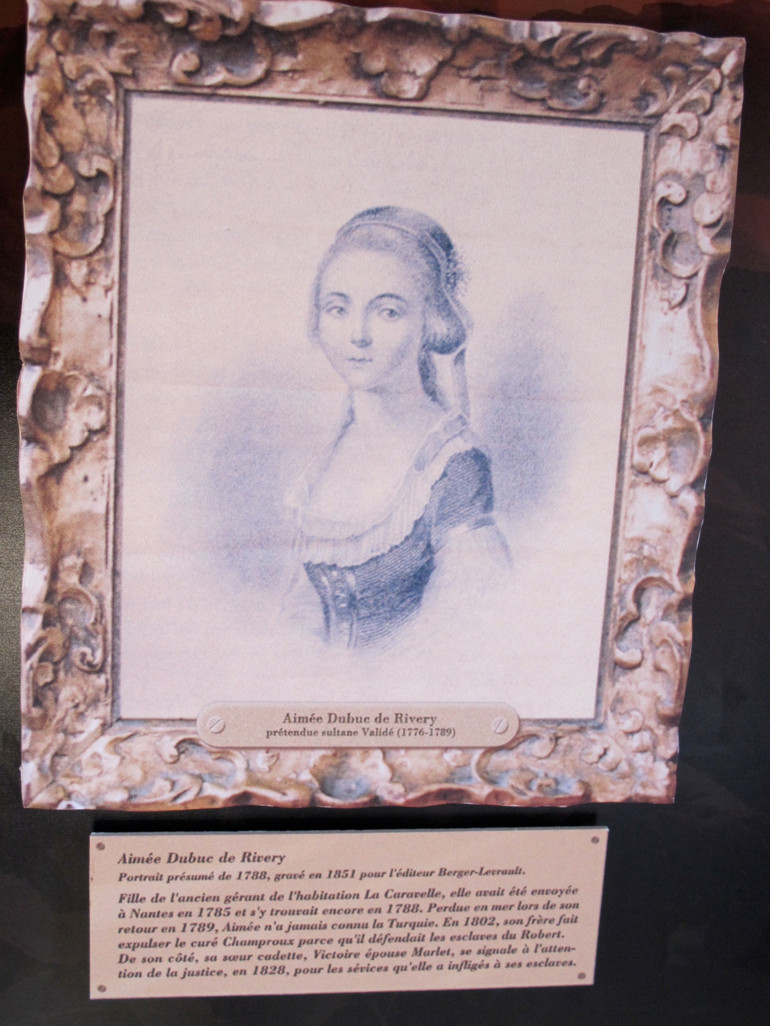 Aimée Dubuc de Rivery
prétendue sultane Validé (1776-1789)
Aimée Dubuc de Rivery
Portrait présumé de 1788, gravé en 1851 pour l'éditeur Berger-Levrault.
Fille de l'ancien gérant de l'habitation La Caravelle, elle avait été envoyée
à Nantes en 1785 et s'y trouvait encore en 1788. Perdue en mer lors de son
retour en 1789, Aimée n'a jamais connu la Turquie. En 1802, son frère fait
expulser le curé Champroux parce qu'il défendait les esclaves du Robert.
De son côté, sa sœur cadette, Victoire épouse Marlet, se signale à l'atten-
tion de la justice, en 1828, pour les sévices qu'elle a infligés à ses esclaves.